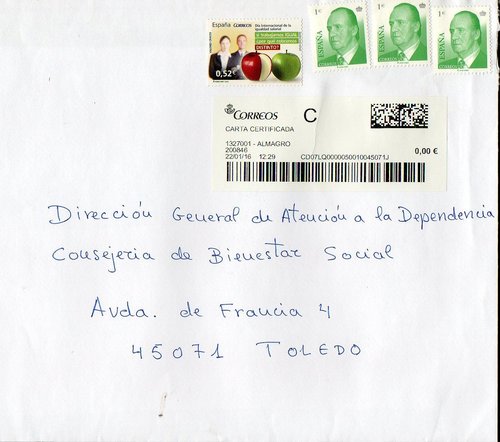 España CORREOS
Día Internacional de la
igualdad salarial
si trabajamos IGUAL
¿por qué cobramos
DISTINTO?
0,52€
1€
ESPAÑA
1€
ESPAÑA
1€
ESPAÑA
CORREOS
C
CARTA CERTIFICADA
1327001 - ALMAGRO
200846
0,00 €
22/01/16 12:29 CD07LQ0000050010045071J
Dirección General de Atención a la Dependencia
Consejeria de Bienestar Social
Avda. de Francia 4
45071 TOLEDO